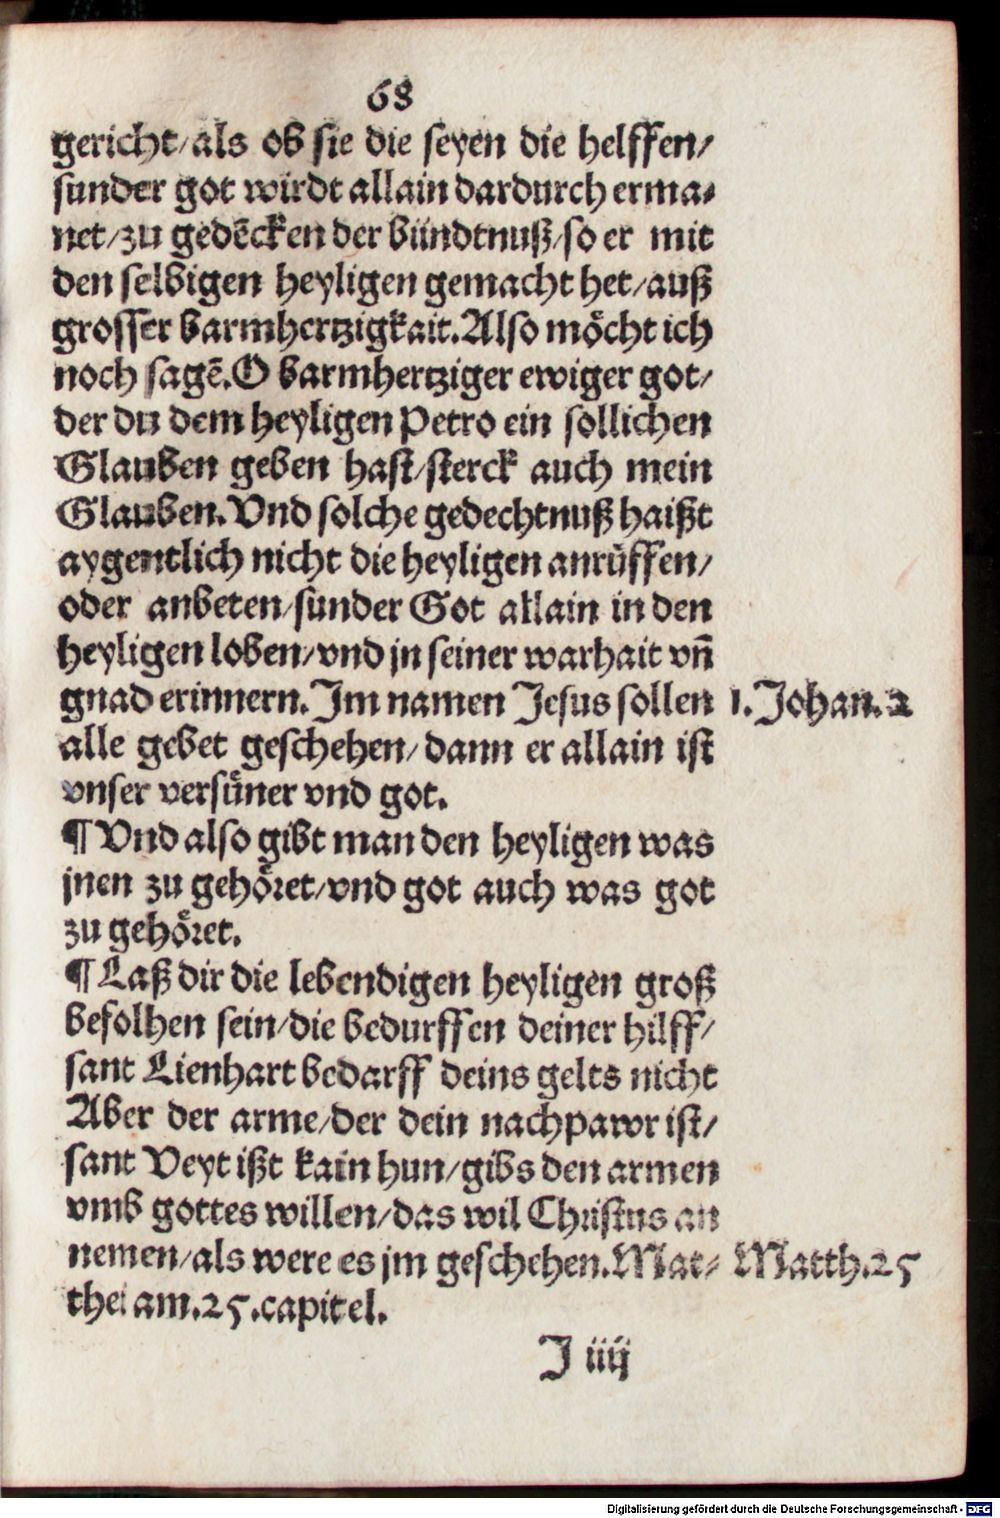 68
gericht/als ob sie die seyen die helffen/
sunder got wirdt allain dardurch erma⸗
net/zu gedēcken der bündtnuß/so er mit
den selbigen heyligen gemacht het/auß
grosser barmhertzigkait.Also möcht ich
noch sagē.O barmhertziger ewiger got/
der du dem heyligen Petro ein sollichen
Glauben geben hast/sterck auch mein
Glauben.Vnd solche gedechtnuß haißt
aygentlich nicht die heyligen anrůffen/
oder anbeten/sunder Got allain in den
heyligen loben/vnd jn seiner warhait vñ
gnad erinnern.Im namen Jesus sollen 1.Johan.2
alle gebet geschehen/dann er allain ist
vnser versüner vnd got.
¶ Vnd also gibt man den heyligen was
jnen zu gehöret/vnd got auch was got
zu gehöret.
¶ Laß dir die lebendigen heyligen groß
befolhen sein/die bedurffen deiner hilff/
sant Lienhart bedarff deins gelts nicht
Aber der arme/der dein nachpawr ist/
sant Veyt ißt kain hun/gibs den armen
vmb gottes willen/das wil Christus an
nemen/als were es jm geschehen.Mat⸗ Matth.25
thei am.25.capitel.
J iiij
Digitalisierung gefördert durch die Deutsche Forschungsgemeinschaft - DFG